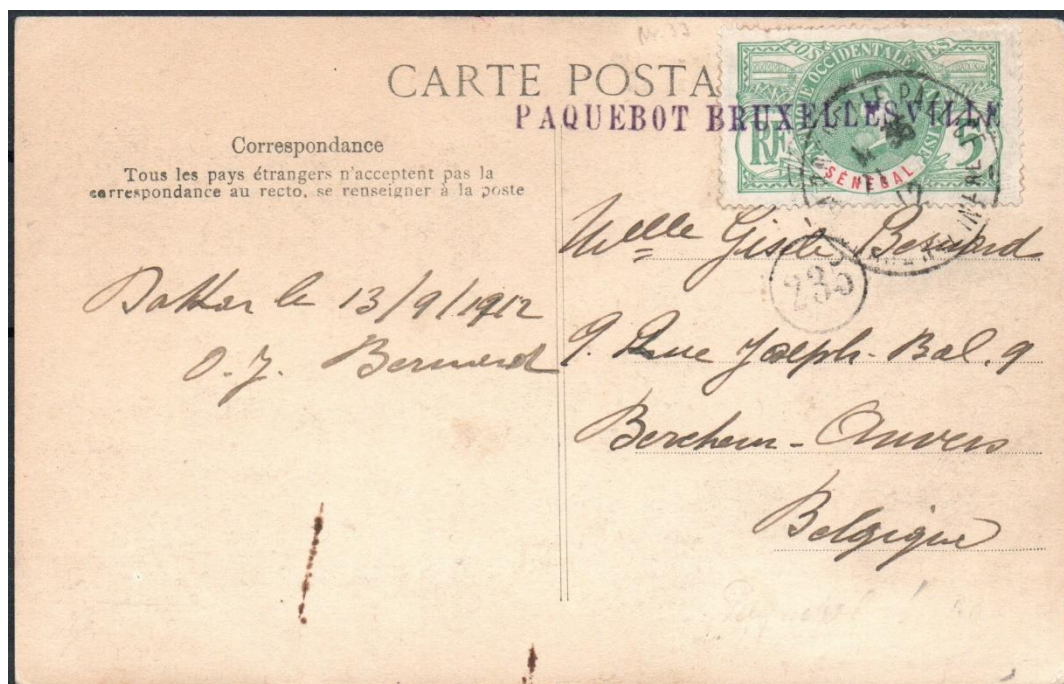 CARTE POSTA
PAQUEBOT BRUXELLESVILLE
OCCIDENTALE
RF 5
SÉNÉGAL
12
Correspondance
Tous les pays étrangers n'acceptent pas la
correspondance au recto, se renseigner à la poste
Dakar le 13/9/1912
O. J. Bernard
235
Melle Gisèle Bernard
9. Rue Joseph. Bal. 9
Berchem - Anvers
Belgique